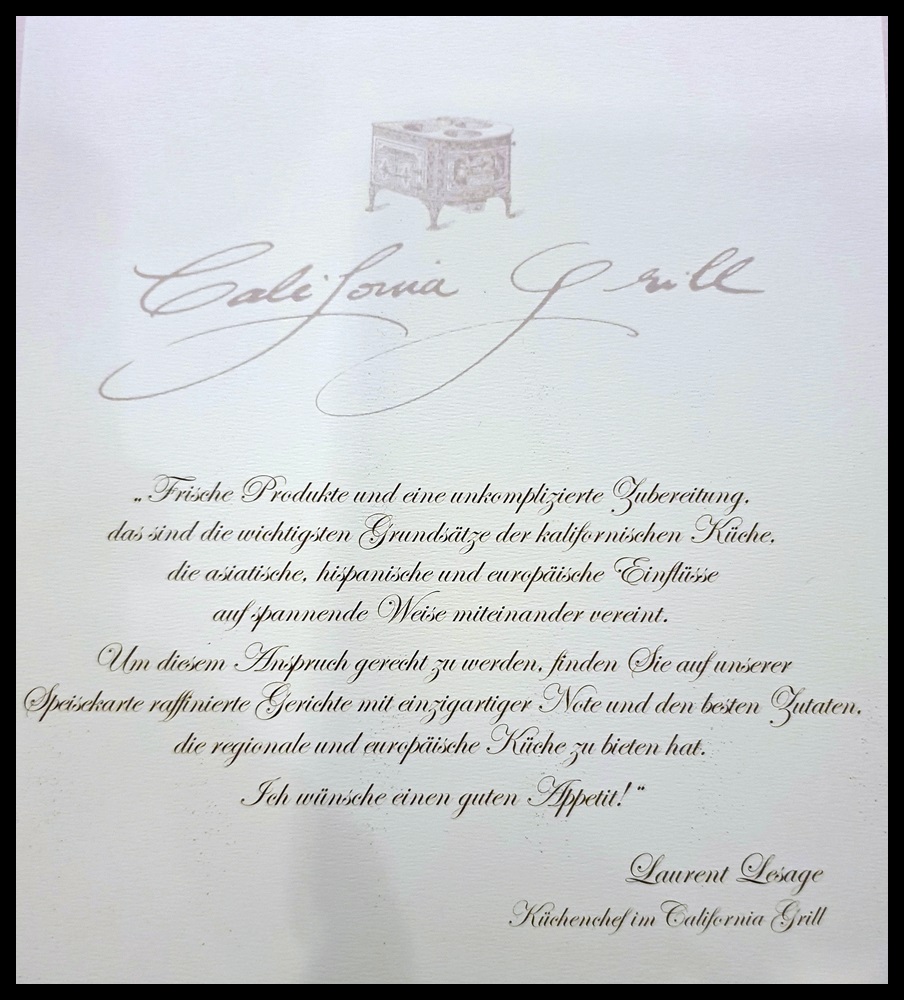 California Grill
„Frische Produkte und eine unkomplizierte Zubereitung,
das sind die wichtigsten Grundsätze der kalifornischen Küche,
die asiatische, hispanische und europäische Einflüsse
auf spannende Weise miteinander vereint.
Um diesem Anspruch gerecht zu werden, finden Sie auf unserer
Speisekarte raffinierte Gerichte mit einzigartiger Note und den besten Zutaten,
die regionale und europäische Küche zu bieten hat.
Ich wünsche einen guten Appetit!“
Laurent Lesage
Küchenchef im California Grill